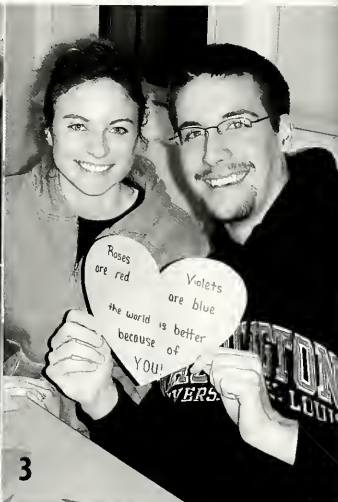 Roses
are red
Violets
are blue
the world is better
because of
YOU!
TON
VERS LOUI
3